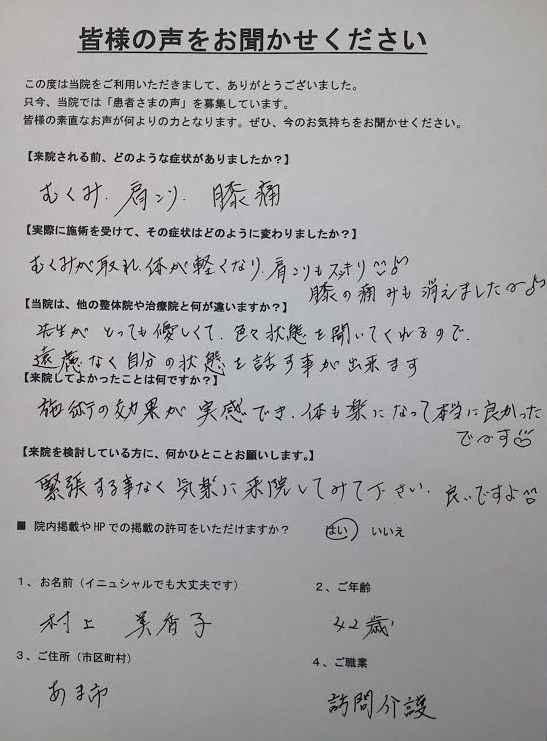 皆様の声をお聞かせください
この度は当院をご利用いただきまして、ありがとうございました。
只今、当院では「患者さまの声」を募集しています。
皆様の素直なお声が何よりの力となります。ぜひ、今のお気持ちをお聞かせください。
【来院される前、どのような症状がありましたか?】
むくみ、肩こり、膝痛
【実際に施術を受けて、その症状はどのように変わりましたか?】
むくみが取れ、体が軽くなり、肩こりもスッキリ♪
膝の痛みも消えました〜♪
【当院は、他の整体院や治療院と何が違いますか?】
先生がとっても優しくて、色々状態を聞いてくれるので、
遠慮なく自分の状態を話す事が出来ます
【来院してよかったことは何ですか?】
施術の効果が実感でき、体も楽になって本当に良かった
で〜す
【来院を検討している方に、何かひとことお願いします。】
緊張する事なく気楽に来院してみて下さい、良いですよ
■ 院内掲載やHPでの掲載の許可をいただけますか? はい いいえ
1、お名前(イニュシャルでも大丈夫です)
村上 美香子
2、ご年齢
42歳
3、ご住所(市区町村)
あま市
4、ご職業
訪問介護